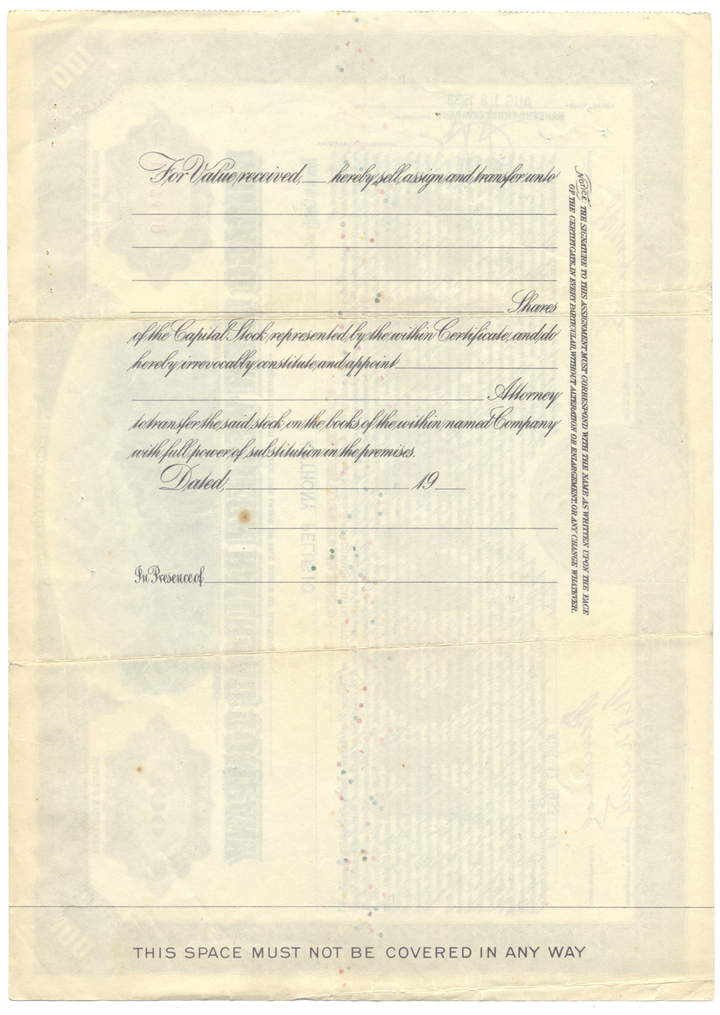 For Value received, ___ hereby sell, assign and transfer unto
Shares
of the Capital Stock represented by the within Certificate, and do
hereby irrevocably constitute and appoint
Attorney
to transfer the said stock on the books of the within named Company
with full power of substitution in the premises.
Dated, 19
In Presence of
NOTICE. THE SIGNATURE TO THIS ASSIGNMENT MUST CORRESPOND WITH THE NAME AS WRITTEN UPON THE FACE
OF THE CERTIFICATE, IN EVERY PARTICULAR, WITHOUT ALTERATION OR ENLARGEMENT, OR ANY CHANGE WHATEVER.
THIS SPACE MUST NOT BE COVERED IN ANY WAY